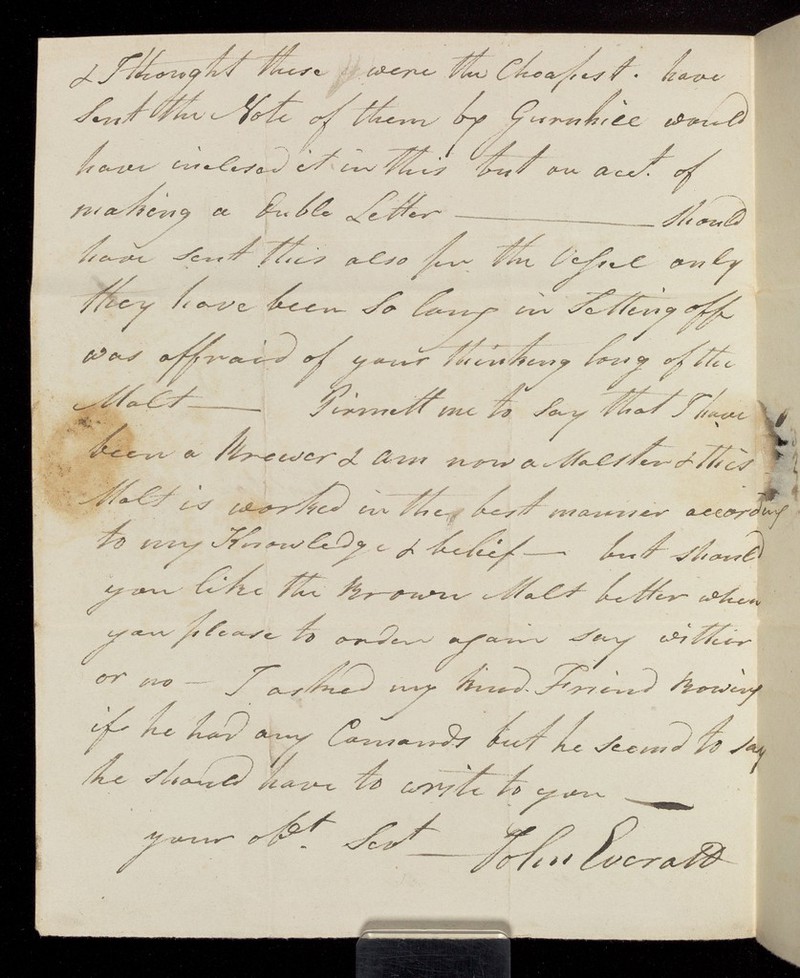 & I thought these were the Cheapest. have
Sent the Note of them by Gurnhill would
have inclosed it in this but on acct. of
making a Duble Letter — should
have sent this also per the Vessel only
they have been So long in Setting off
was affraid of your thinking long of the
Malt — Pirmett me to Say that I have
been a Brewer & am now a Malster & this
Malt is worked in the best manner according
to my Knowledge & belief — but should
you like the Brown Malt better when
you please to order again say wither
or no — I asked my kind. Friend Bowing
if he had any Comands but he seemd to say
he should have to write to you —
your obt. Sevt — John Everatt